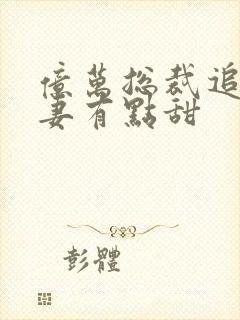 億萬總裁追
妻有點甜
彭體